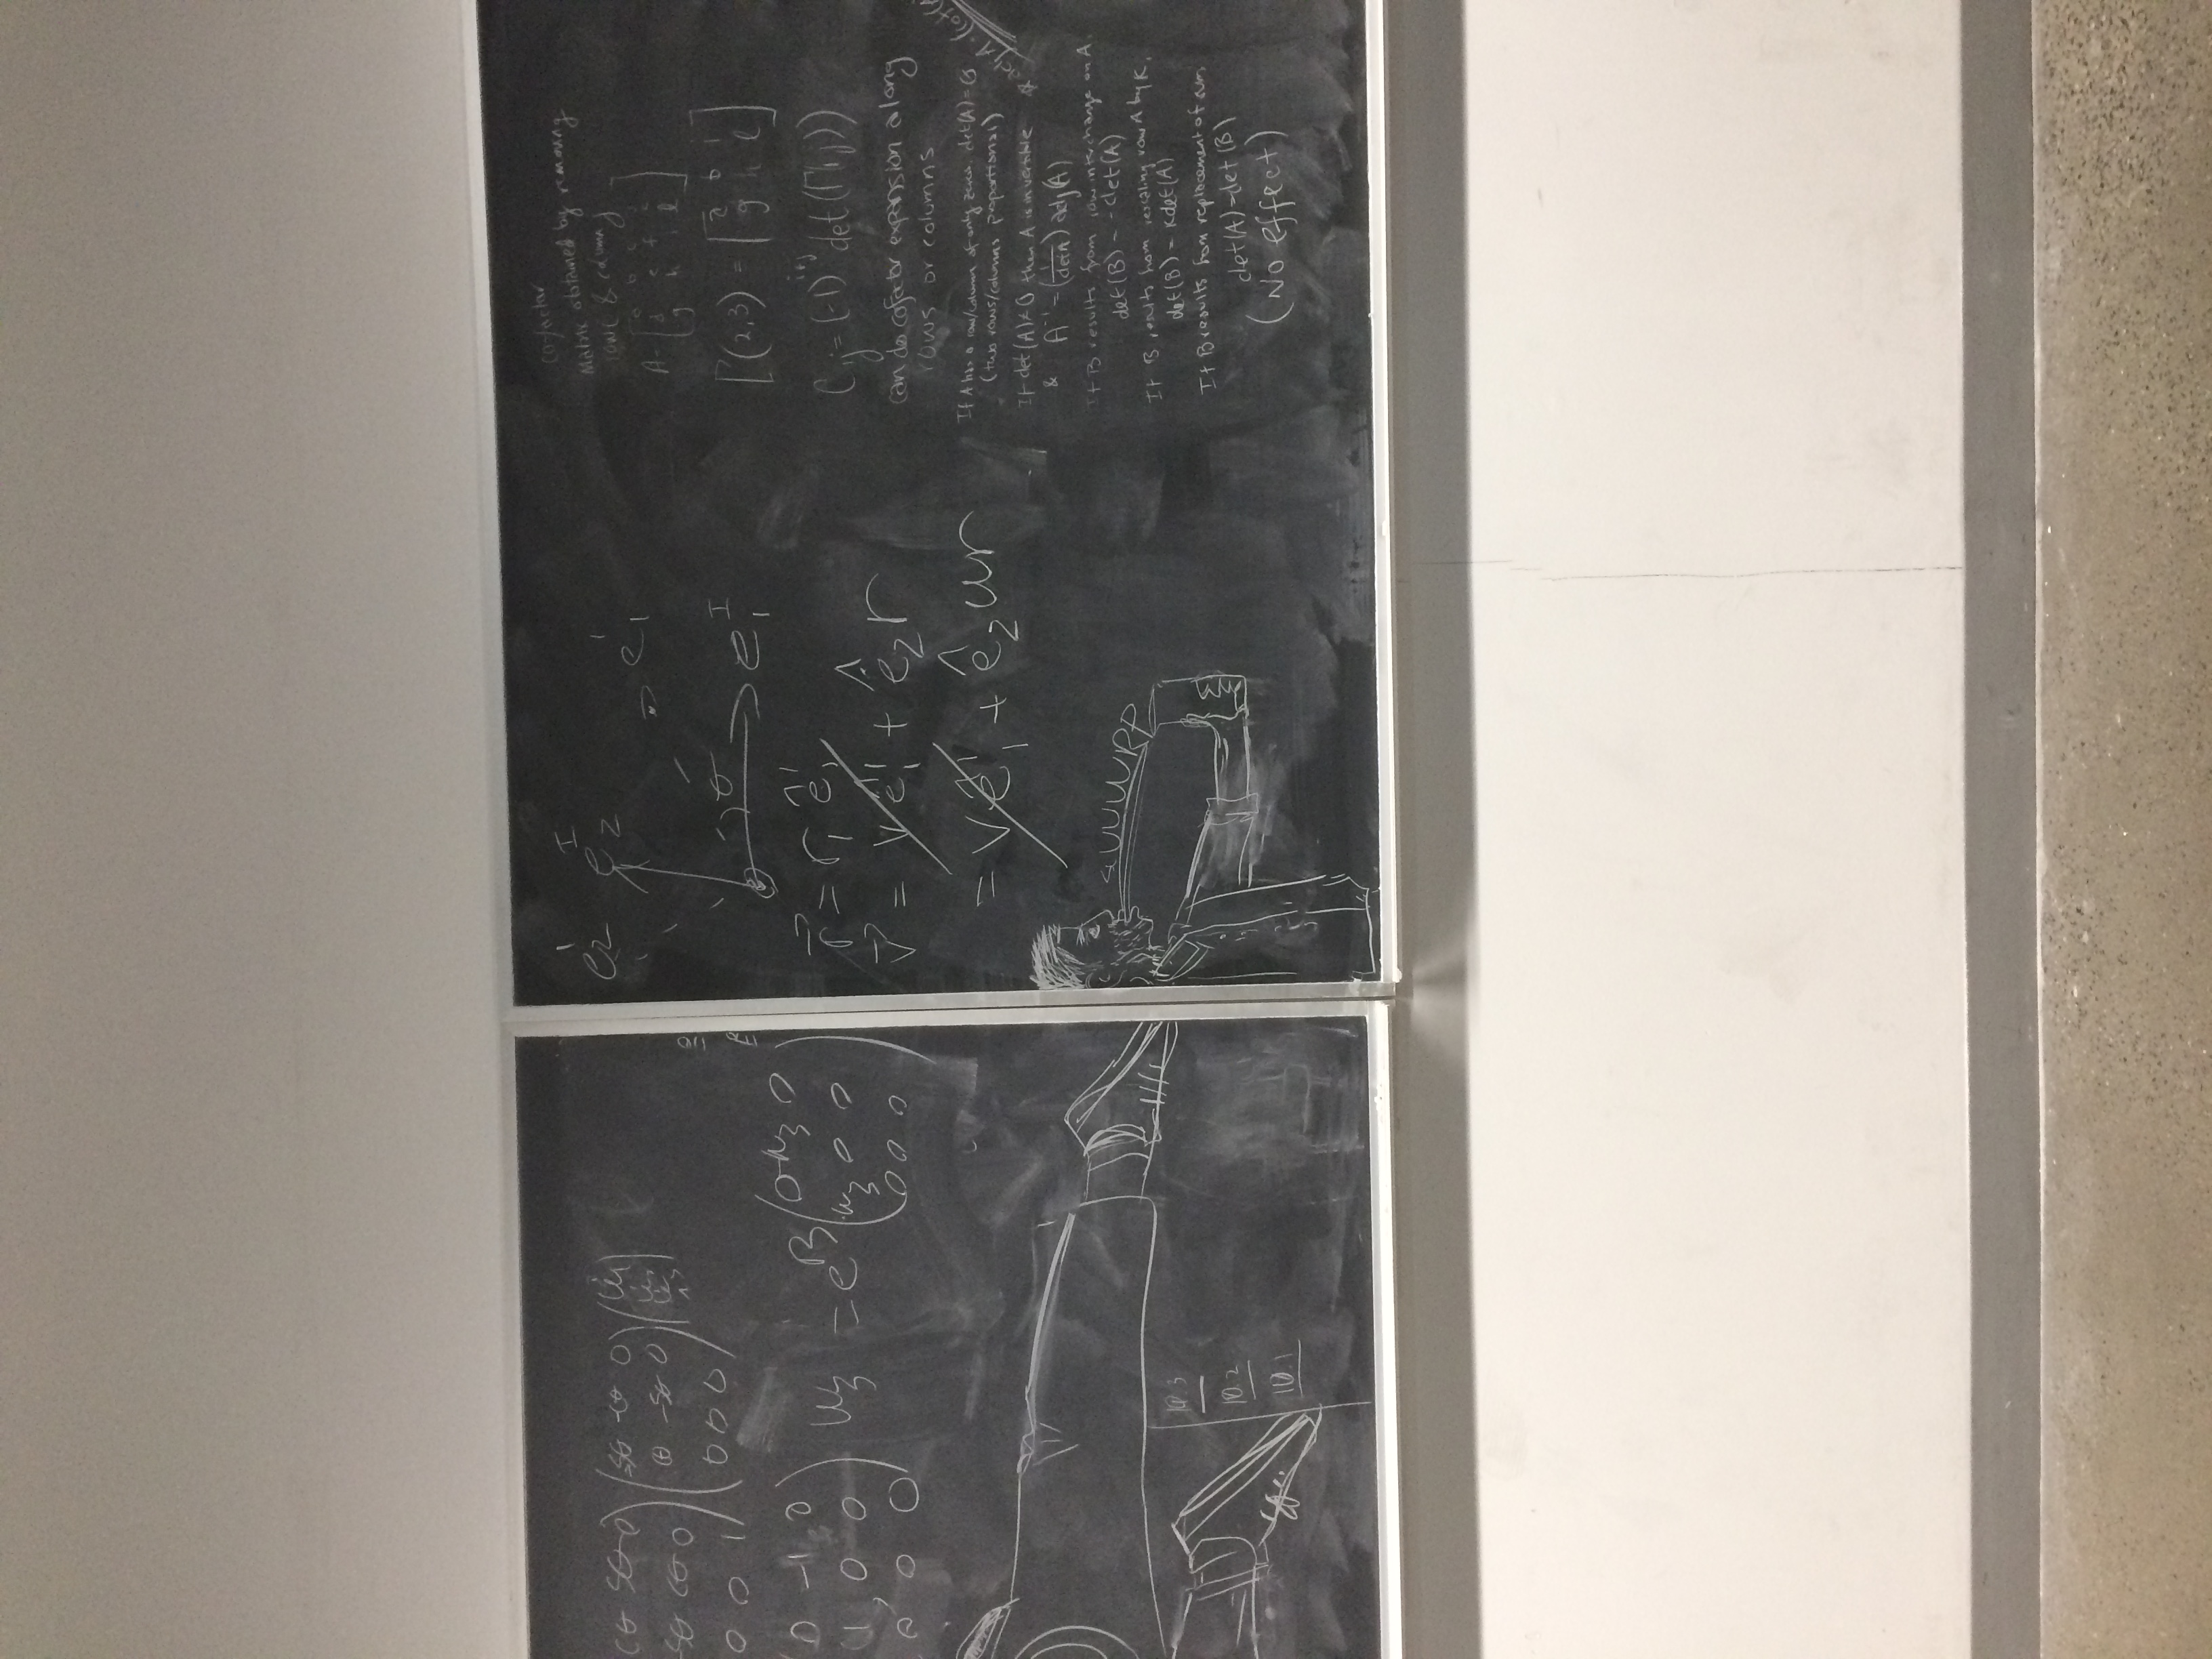 cθ sθ 0
-sθ cθ 0
0 0 1
-sθ -cθ 0
cθ -sθ 0
0 0 0
0 -1 0
1, 0 0
0 0 0
ω3 = e^B
0 -ω3 0
ω3 0 0
0 0 0
10.3
10.2
10.1
e2' e2^I
e1'
θ
e1^I
r⃗ = r1 ê1'
v⃗ = v ê1' + ê2 r
= v ê1' + ê2 ωr
SUUUWRP
cofactor
Matrix obtained by removing
row i & column j
A =
g h i l
Γ(2,3) =
a b
g h l
Cij = (-1)^i+j det(Γ(i,j))
can do cofactor expansion along
rows or columns
If A has a row/column of only zeros, det(A) = 0
(two rows/columns proportional)
If det(A) ≠ 0 then A is invertible
& A^-1 = (1/det A) adj(A)
adj A =
If B results from row interchange on A,
det(B) = -det(A)
If B results from rescaling row A by K,
det(B) = Kdet(A)
If B results from replacement of sum,
det(A) = det(B)
(No effect)